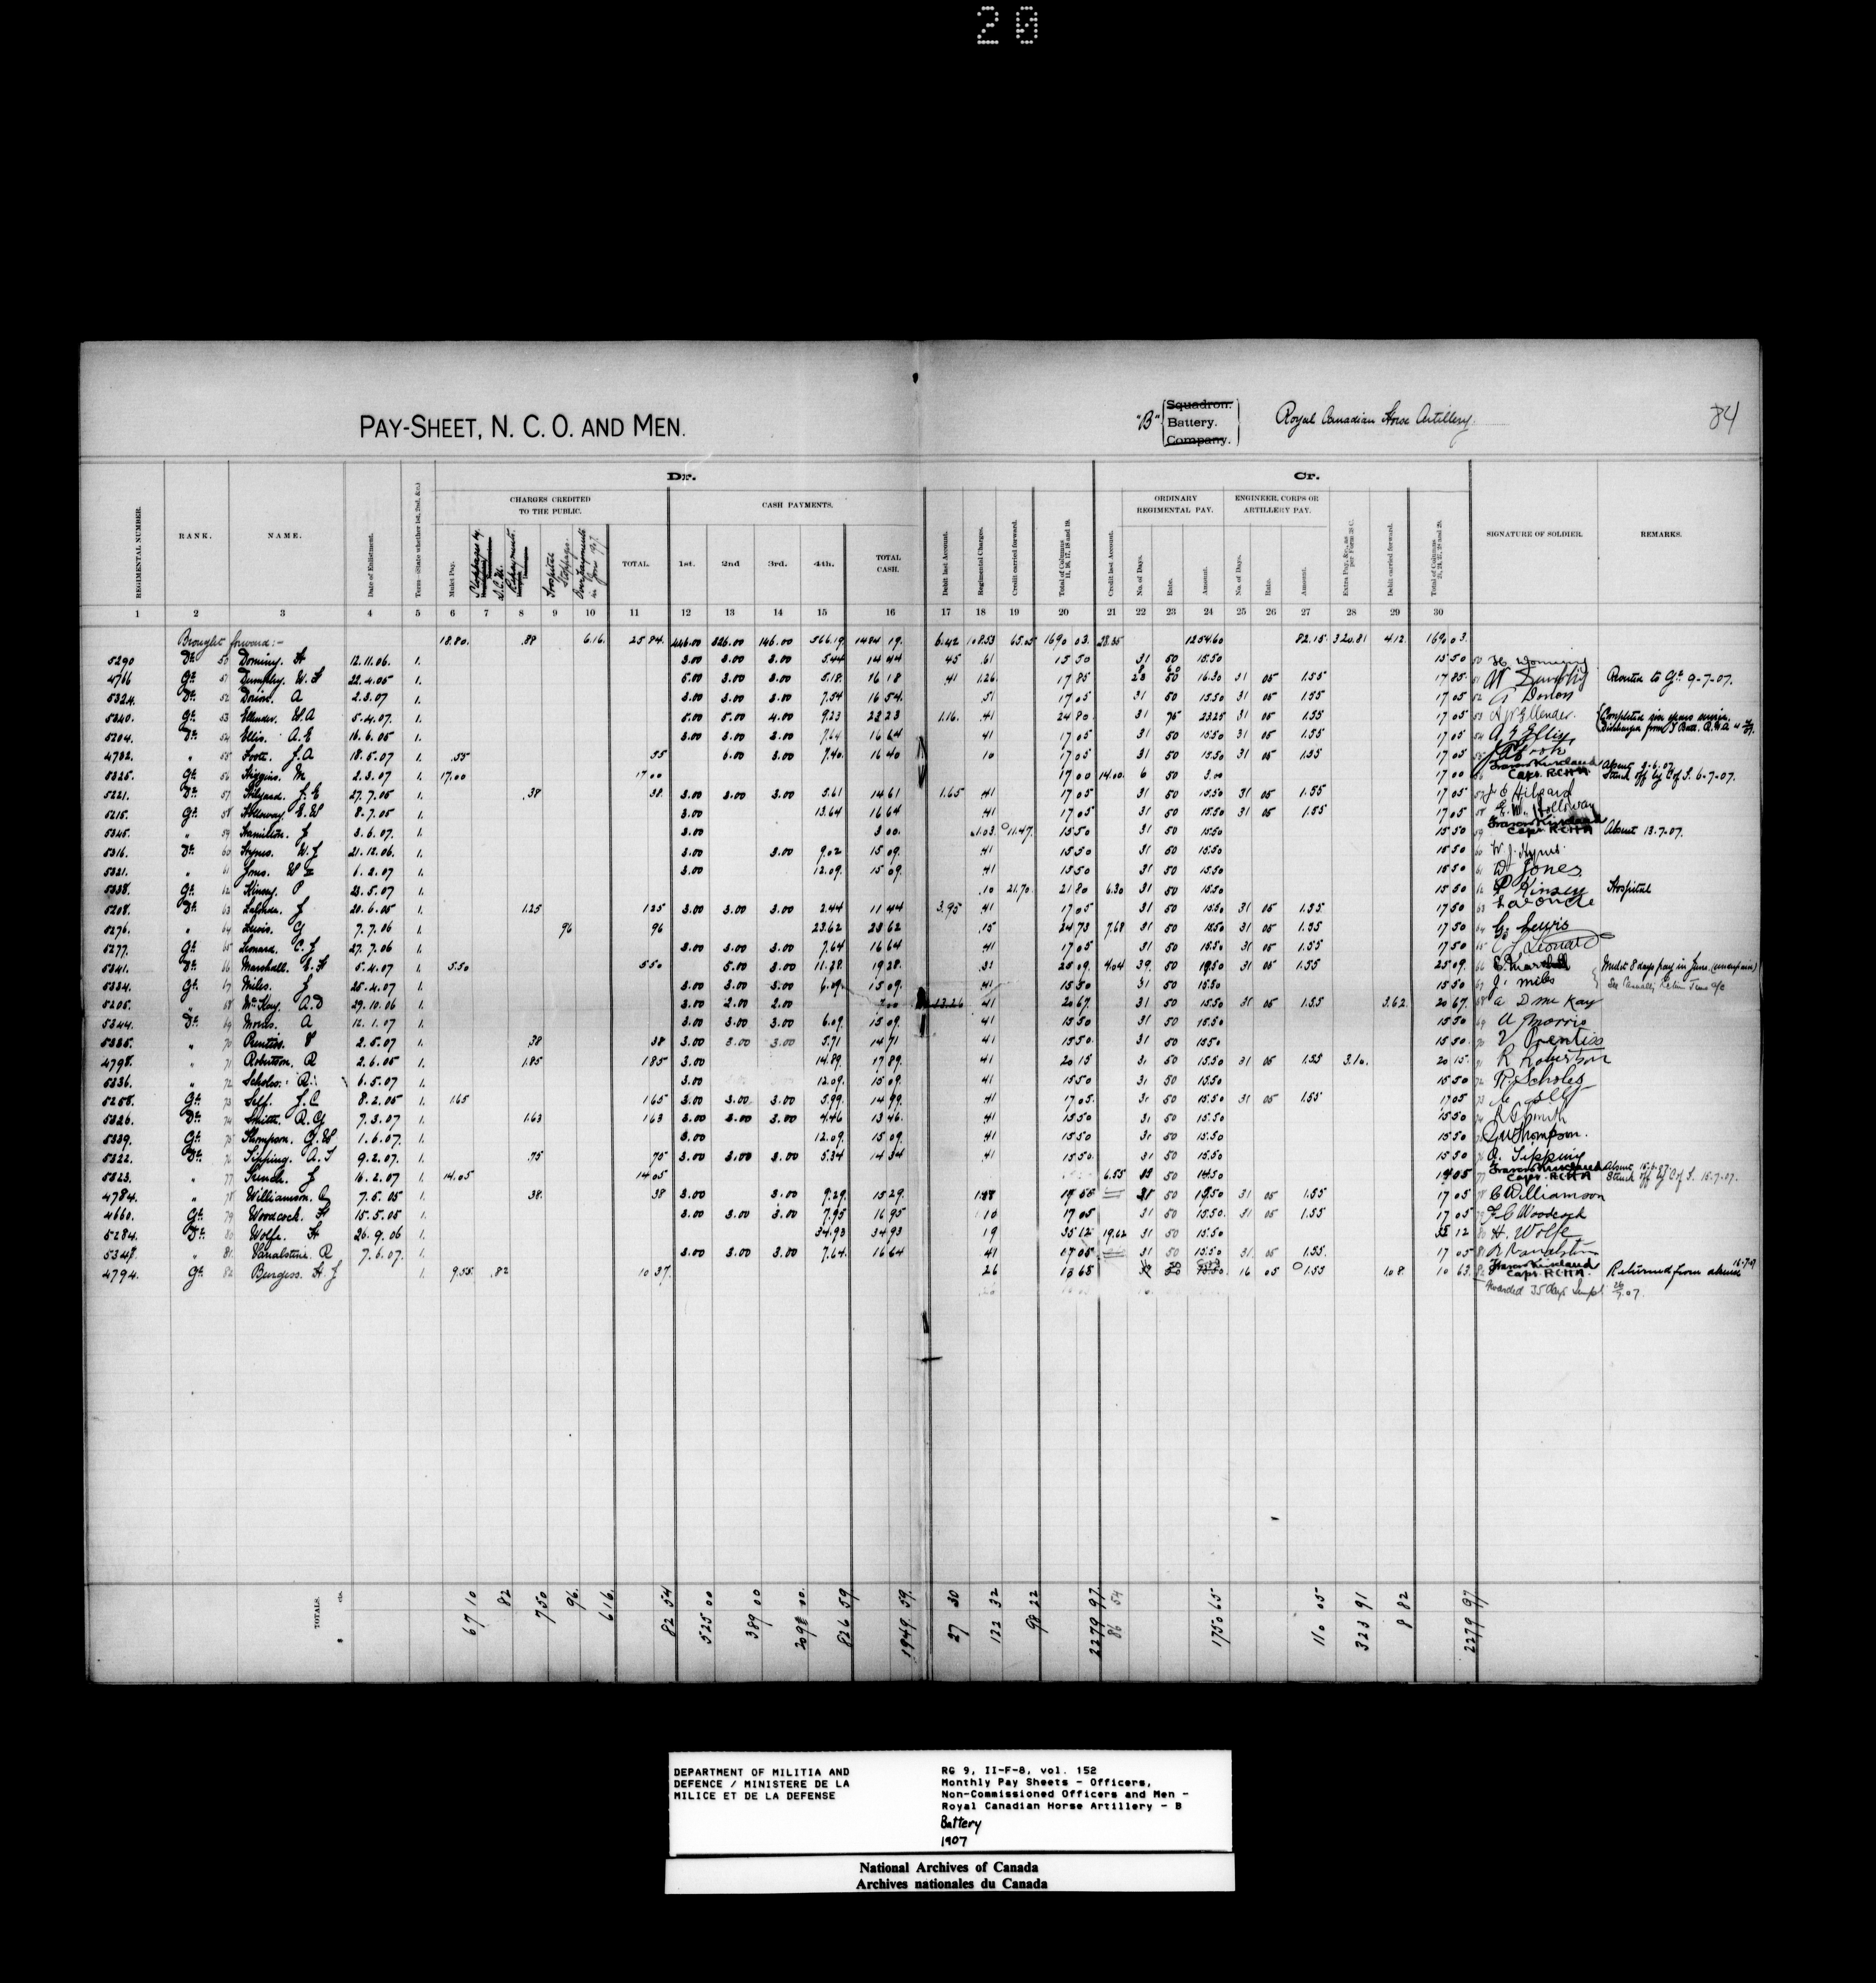 20
PAY-SHEET, N. C. O. AND MEN.
"B" Squadron. Battery. Company. Royal Canadian Horse Artillery.
84
Dr. Cr.
CHARGES CREDITED TO THE PUBLIC. CASH PAYMENTS. ORDINARY REGIMENTAL PAY. ENGINEER CORPS OR ARTILLERY PAY.
REGIMENTAL NUMBER. RANK. NAME. Date of Enlistment. Term—(State whether 1st, 2nd, &c.) Mulct Pay. Hospital Stoppages. Overpayments in June 1907. TOTAL. 1st. 2nd 3rd. 4th. TOTAL CASH. Debit last Account. Regimental Charges. Credit carried forward. Total of Columns 11, 16, 17, 18 and 19. Credit last Account. No. of Days. Rate. Amount. No. of Days. Rate. Amount. Extra Pay, &c., as per Form Debit carried forward. Total of Columns SIGNATURE OF SOLDIER. REMARKS.
1 2 3 4 5 6 7 8 9 10 11 12 13 14 15 16 17 18 19 20 21 22 23 24 25 26 27 28 29 30
Brought forward:- 18.80. .88 6.16. 25 84. 326.00 146.00 566.19 1484 19. 6.42 108.53 65.05 1690 03. 28.35 1254.60 82.15 320.81 4.12. 1690 03.
5290 Dr. 50 Dominy. H 12.11.06. 1. 3.00 3.00 3.00 5.44 14 44 45 .61 15 50 31 50 15.50 15 50
4766 Gr. 51 Dumphy. W. 22.4.05 1. 5.00 3.00 3.00 5.18. 16 18 .41 1.26. 17 85 16.30 31 05 1.55 17 85 9-7-07.
5324. Dr. 52 A 2.3.07 1. 3.00 3.00 3.00 7.54 16 54. .51 17 05 31 50 15.50 31 05 1.55 17 05
5340. Gr. 53 Ellender. W.A 5.4.07. 1. 5.00 5.00 4.00 9.23 1.16. .41 24 80. 31 75 23.25 31 05 1.55 17 05 Completed five years service.
5204. Dr. 54 Ellis. A.E 16.6.05 1. 3.00 3.00 3.00 7.64 16 64 .41 17 05 31 50 15.50 31 05 1.55 17 05
4782. " 55 J.A 18.5.07 1. .55 55 6.00 3.00 7.40. 16 40 10 17 05 31 50 15.50 31 05 1.55 17 05
5325. Gr. 56 Higgins. M 2.3.07 1. 17.00 17 00 17 00 14.00. 6 50 3.00 17 00 Capt. RCHA Absent Struck off by C of I. 6-7-07.
5221. Dr. 57 Hilyard. J.E 27.7.05 1. .38 38. 3.00 3.00 3.00 5.61 14 61 1.65 .41 17 05 31 50 15.50 31 05 1.55 17 05
5215. Gr. 58 Holloway E.W 8.7.05 1. 3.00 13.64 16 64 .41 17 05 31 50 15.50 31 05 1.55 17 05 E. W. Holloway
5345. " 59 Hamilton. J 3.6.07. 1. 3.00 3 00. 1.03. 11.47. 15 50 31 50 15.50 15 50 Capt. RCHA Absent 13.7.07.
5316. Dr. 60 Hynes. W.J 21.12.06. 1. 3.00 3.00 9.02 15 09. .41 15 50 31 50 15.50 15 50 W. J. Hynes.
5321. " 61 Jones. W 6.2.07 1. 3.00 12.09. 15 09. .41 15 50 31 50 15.50 15 50 W Jones
5338. Gr. 62 Kinsey. P 23.5.07 1. .10 21.70 21 80 6.30 31 50 15.50 15 50 P Kinsey Hospital
5208. Dr. 63 Lalonde. J 20.6.05 1. 1.25 1 25 3.00 3.00 3.00 2.44 11 44 3.95 .41 17 05 31 50 15.50 31 05 1.55 17 50
5276. " 64 Lewis. G 7.7.06 1. 96 96 23.62 23 62 .15 24 73 7.68 31 50 15.50 31 05 1.55 17 50 G. Lewis
5277. Gr. 65 Leonard. C.J 27.7.06 1. 3.00 3.00 3.00 7.64 16 64 .41 17 05 31 50 15.50 31 05 1.55 17 50
5341. Dr. 66 Marshall. E.H 5.4.07 1. 5.50 5 50 5.00 3.00 11.28. 19 28. .31 25 09. 4.04 39. 50 19.50 31 05 1.55 25 09. E. Marshall Mulct 8 days pay in June.
5334. Gr. 67 Miles. J 25.4.07 1. 3.00 3.00 3.00 6.09. 15 09. .41 15 50 31 50 15.50 15 50 J. Miles
5205. " 68 McKay. A.D 29.10.06 1. 3.00 2.00 2.00 7 00 13.26 .41 20 67. 31 50 15.50 31 05 1.55 3.62. 20 67. A D McKay
5344. Dr. 69 Morris. A 12.1.07 1. 3.00 3.00 3.00 6.09. 15 09. .41 15 50 31 50 15.50 15 50 A Morris
5335. " 70 Prentiss. V 2.5.07 1. .38 38 3.00 3.00 3.00 5.71 14 71 .41 15 50. 31 50 15.50 15 50. V Prentiss
4798. " 71 Robertson. R 2.6.05 1. 1.85 1 85 3.00 14.89. 17 89. .41 20 15 31 50 15.50 31 05 1.55 3.10. 20 15. R Robertson
5336. " 72 Scholes. R. 6.5.07 1. 3.00 12.09. 15 09. .41 15 50 31 50 15.50 15 50 R. Scholes
5258. Gr. 73 Self. J.C 8.2.05 1. 1.65 1 65 3.00 3.00 3.00 5.99. 14 99. .41 17 05. 31 50 15.50 31 05 1.55 17 05
5326. Dr. 74 Smith. R.G 7.3.07 1. 1.63 1 63 3.00 3.00 3.00 4.46 13 46. .41 15 50 31 50 15.50 15 50 R G Smith
5339. Gr. 75 Thompson. G.W 1.6.07. 1. 3.00 12.09. 15 09. .41 15 50 31 50 15.50 15 50 G W Thompson.
5322. Dr. 76 Tipping. A.J 9.2.07. 1. .75 75 3.00 3.00 3.00 5.34 14 34 .41 15 50. 31 50 15.50 15 50 A. Tipping
5323. " 77 French. J 16.2.07 1. 14.05 14 05 6.55 50 14.50 14 05 Capt. RCHA Struck off by C of I. 15.7.07.
4784. " 78 Williamson. C 7.5.05 1. .38. 38 3.00 3.00 9.29. 15 29. 50 15.50 31 05 1.55 17 05 C Williamson
4660. Gr. 79 Woodcock. F 15.5.05 1. 3.00 3.00 3.00 7.95 16 95 .10 17 05 31 50 15.50. 31 05 1.55 17 05 F C Woodcock
5284. Dr. 80 Wolfe. H 26.9.06 1. 34.93 34 93 19 35 12 19.62 31 50 15.50 35 12 H. Wolfe
5348. " 81 Vanalstine. R 7.6.07. 1. 3.00 3.00 3.00 7.64. 16 64 41 17 05 31 50 15.50 31. 05 1.55. 17 05
4794. Gr. 82 Burgess. H.J 1. 9.55 .82 10 37. 26 16 05 1.55 1.08. 10 63. Capt. RCHA. Returned from absence 16-7-07
Awarded 35 days 07.
TOTALS. 67 10 82 7 50 96. 6 16. 82 54 525 00 389 00 826 59 1949 59. 27 30 122 32 98 22 2279 97. 86 54 1750 65 110 05 323 91 8 82 2279 97.
DEPARTMENT OF MILITIA AND
DEFENCE / MINISTERE DE LA
MILICE ET DE LA DEFENSE
RG 9, II-F-8, vol. 152
Monthly Pay Sheets - Officers,
Non-Commissioned Officers and Men -
Royal Canadian Horse Artillery - B
Battery
1907
National Archives of Canada
Archives nationales du Canada